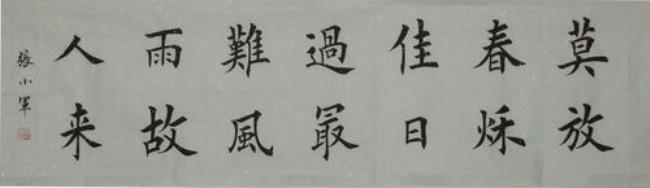 莫放
春秌
佳日
過最
難風
雨故
人来
張小軍